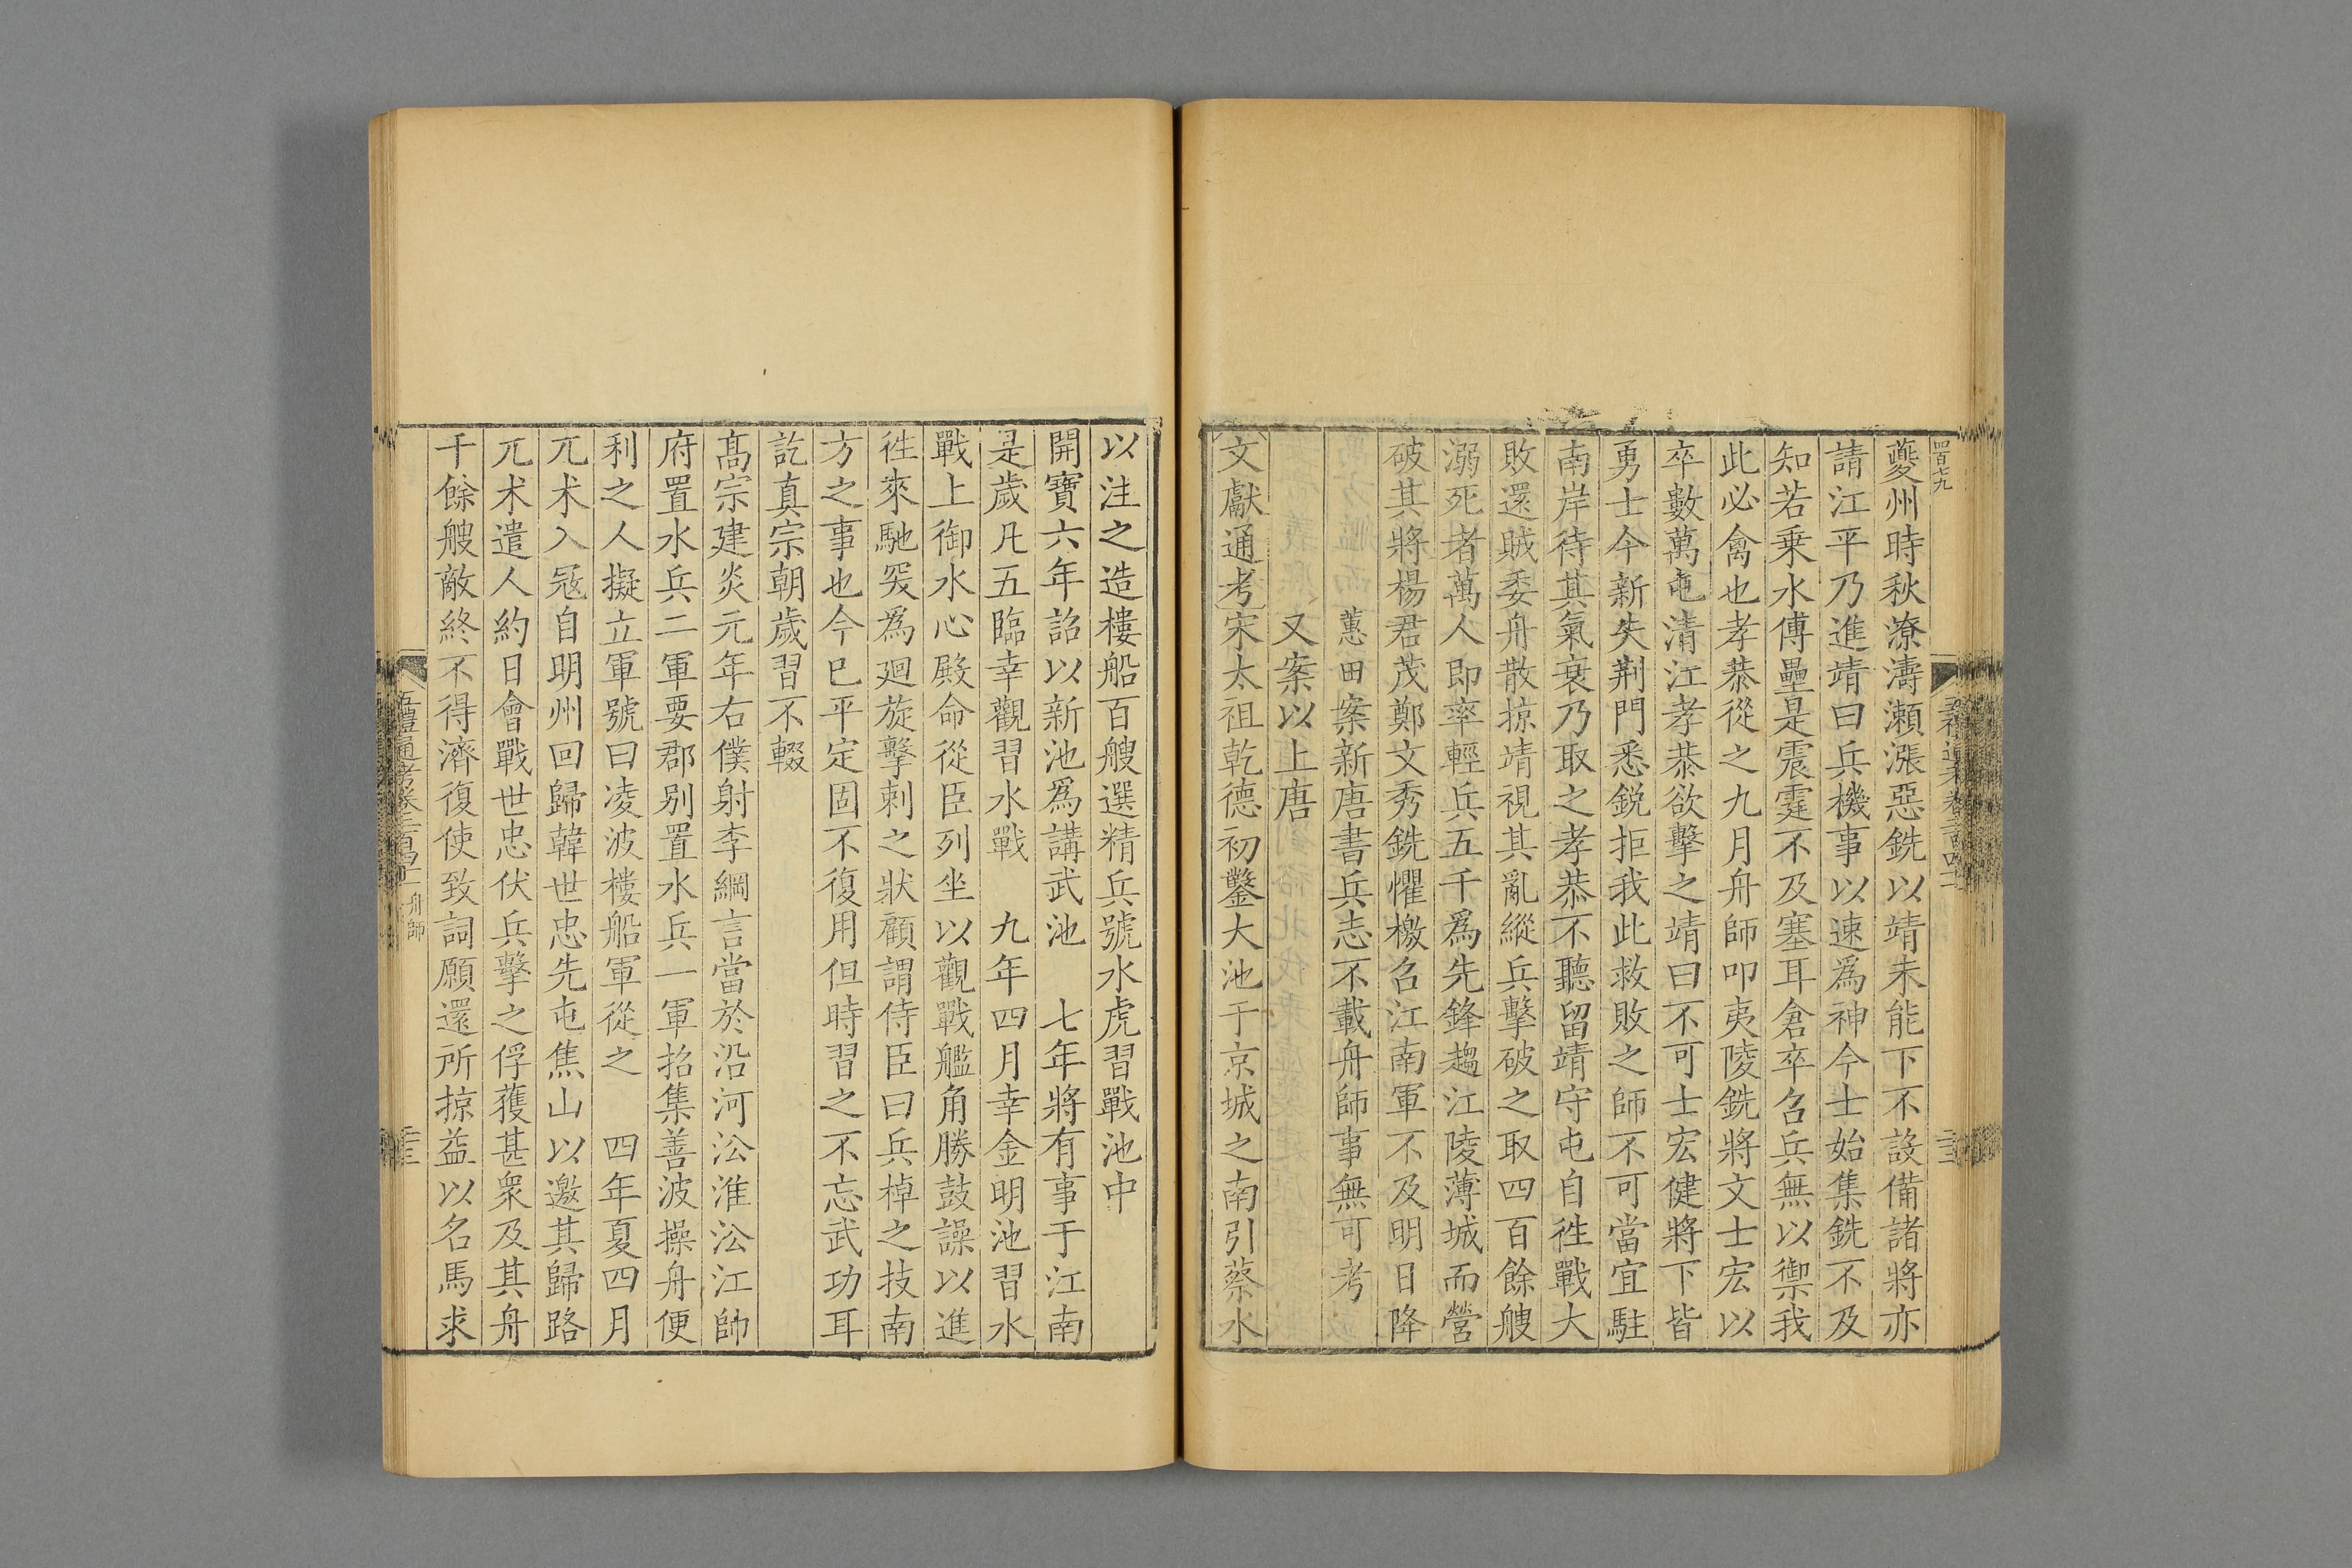 四百七九
夔州時秋潦濤瀨漲惡銑以靖未能下不設備諸將亦
請江平乃進靖曰兵機事以速爲神今士始集銑不及
知若乗水傅壘是震霆不及塞耳倉卒召兵無以禦我
此必禽也孝恭從之九月舟師叩夷陵銑將文士宏以
卒數萬屯清江孝恭欲擊之靖曰不可士宏健將下皆
勇士今新失荆門悉銳拒我此救敗之師不可當宜駐
南岸待其氣衰乃取之孝恭不聽留靖守屯自徃戰大
敗還賊委舟散掠靖視其亂縱兵擊破之取四百餘艘
溺死者萬人即率輕兵五千爲先鋒趨江陵薄城而營
破其將楊君茂鄭文秀銑懼檄召江南軍不及明日降
蕙田案新唐書兵志不載舟師事無可考
又案以上唐
文獻通考宋太祖乾德初鑿大池于京城之南引蔡水
以注之造樓船百艘選精兵號水虎習戰池中
開寶六年詔以新池爲講武池　七年將有事于江南
是歲凡五臨幸觀習水戰　九年四月幸金明池習水
戰上御水心殿命從臣列坐以觀戰艦角勝鼓譟以進
徃來馳突爲廻旋擊刺之狀顧謂侍臣曰兵棹之技南
方之事也今已平定固不復用但時習之不忘武功耳
訖真宗朝歲習不輟
髙宗建炎元年右僕射李綱言當於沿河㳂淮㳂江帥
府置水兵二軍要郡别置水兵一軍招集善波操舟便
利之人擬立軍號曰凌波樓船軍從之　四年夏四月
兀朮入冦自明州回歸韓世忠先屯焦山以邀其歸路
兀朮遣人約日會戰世忠伏兵擊之俘獲甚衆及其舟
千餘艘敵終不得濟復使致詞願還所掠益以名馬求
五禮通考卷二百四十二 舟師